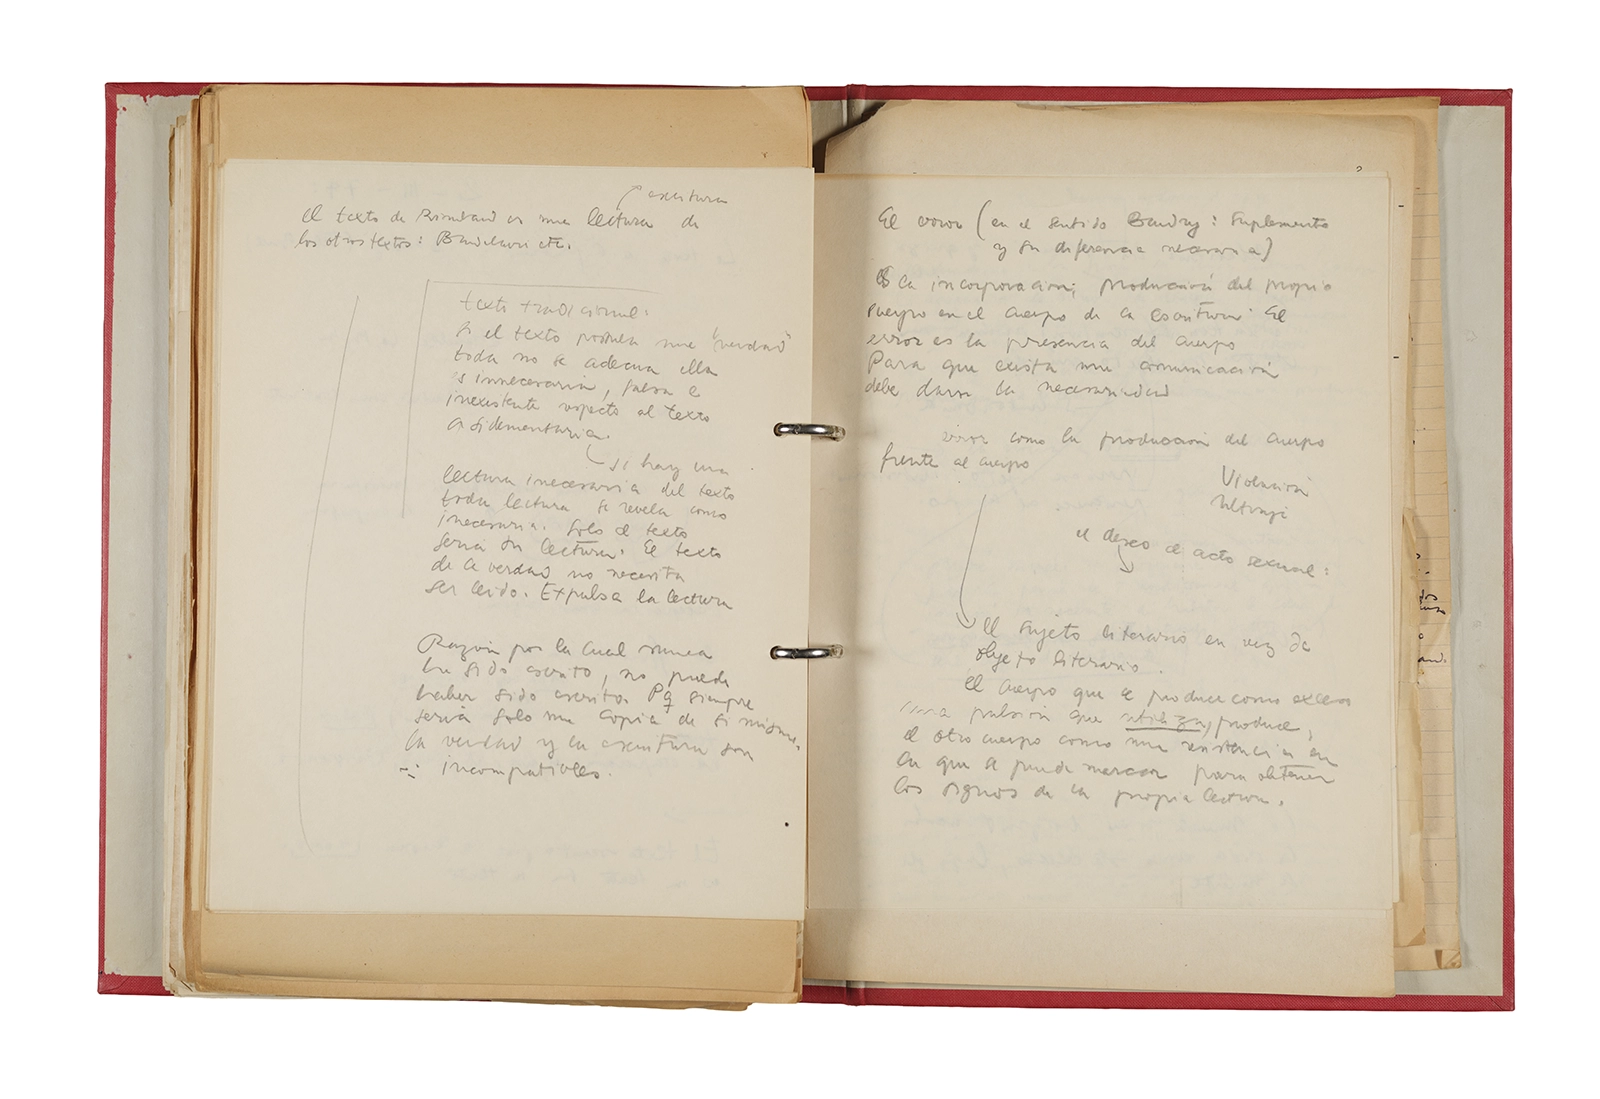 escritura
El texto de Rimbaud es una lectura de
los otros textos: Baudelaire etc.
texto tradicional:
Si el texto postula una "verdad"
toda no se adecua ella
es innecesaria, falsa e
inexistente respecto al texto
o sidementaria.
si hay una
lectura inecesaria del texto
toda lectura se revela como
inecesaria. Solo el texto
seria su lectura. El texto
de la verdad no necesita
ser leido. Expulsa la lectura
Razón por la cual nunca
ha sido escrito, no puede
haber sido escrito. Pq siempre
seria solo una copia de si misma.
la verdad y la escritura son
incompatibles.
El error (en el sentido Baudry: Suplemento
y su diferencia necesaria)
Es la incorporación; producción del propio
cuerpo en el cuerpo de la escritura. El
error es la presencia del cuerpo
Para que exista una comunicación
debe darse la necesariedad
error como la producción del cuerpo
frente al cuerpo
Violación
Ultraje
el deseo el acto sexual:
El sujeto literario en vez de
objeto literario.
El cuerpo que se produce como exceso
una pulsión que utiliza, produce,
el otro cuerpo como una resistencia en
la que se puede marcar para obtener
los signos de la propia lectura.